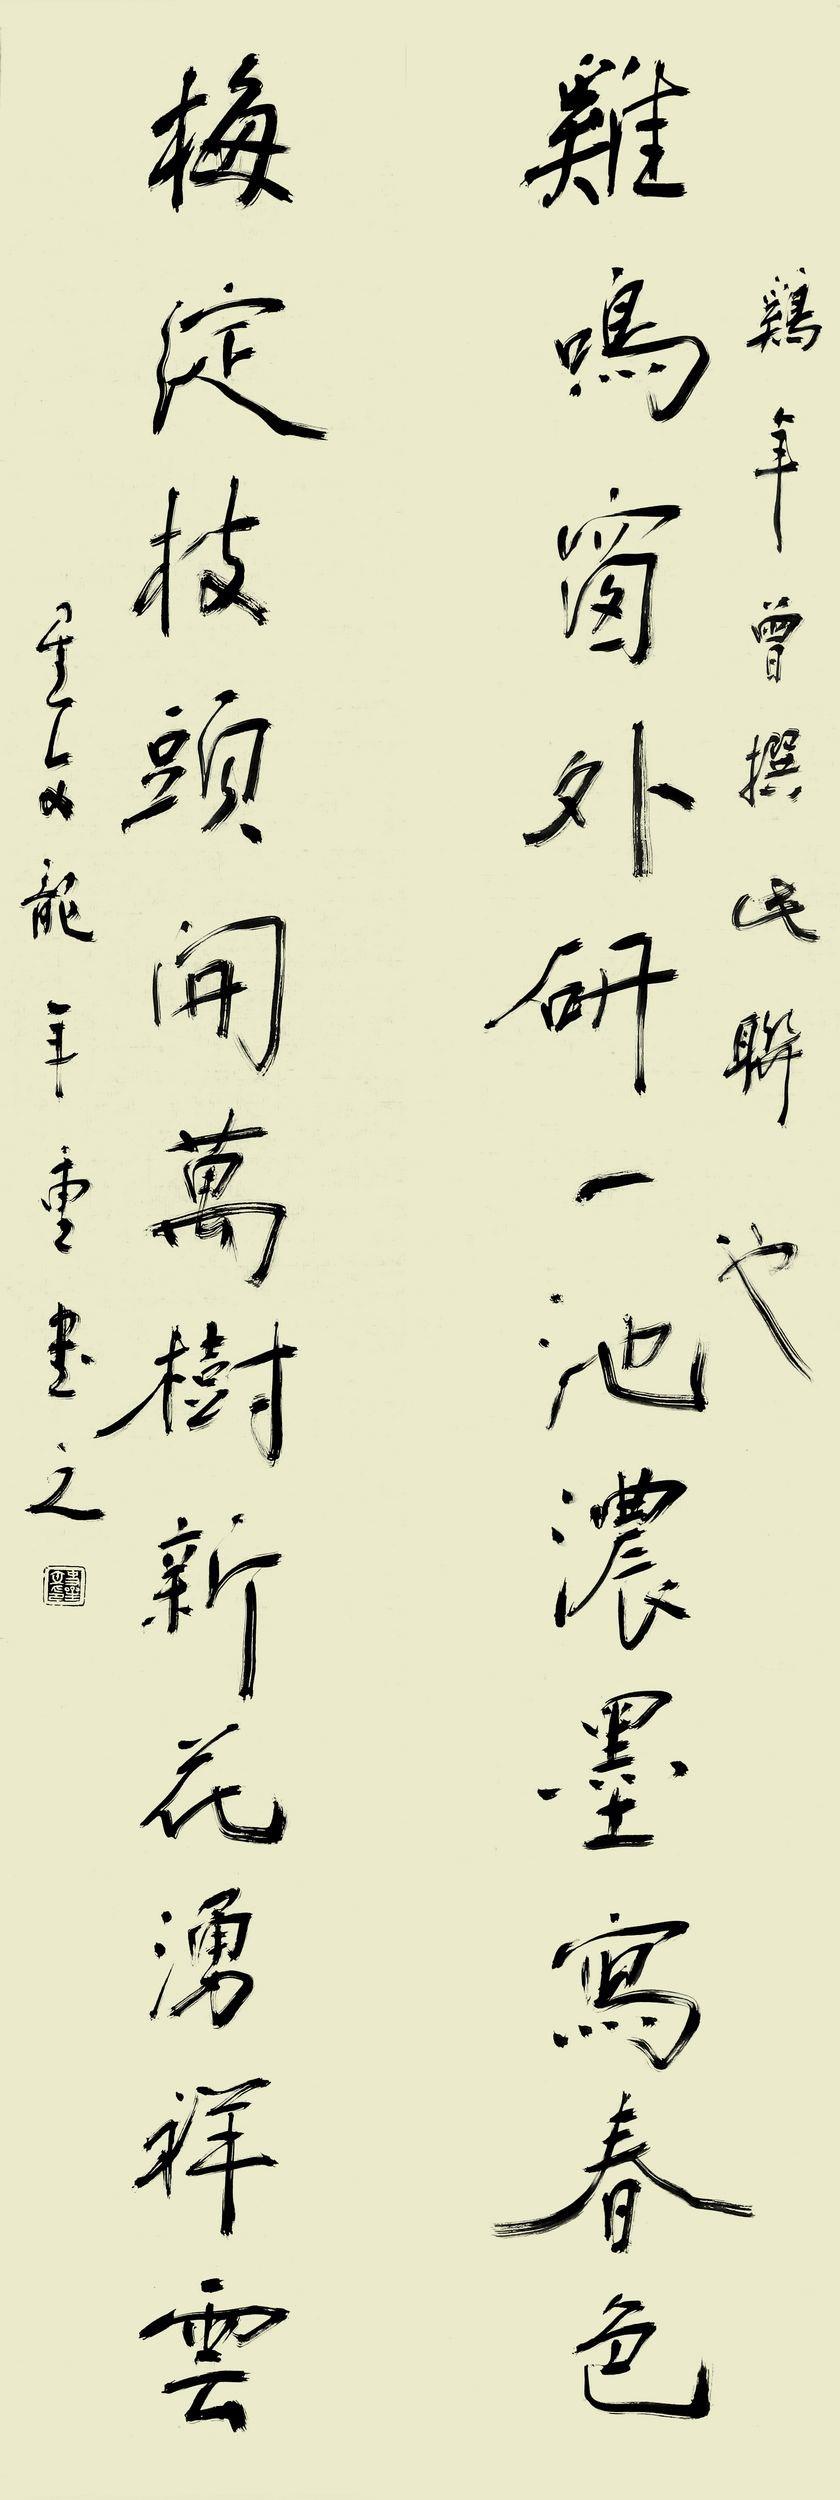 鷄年曾撰此聯也
雞鳴窗外研一池濃墨寫春色
梅綻枝頭開萬樹新花湧祥雲
龍年重書之